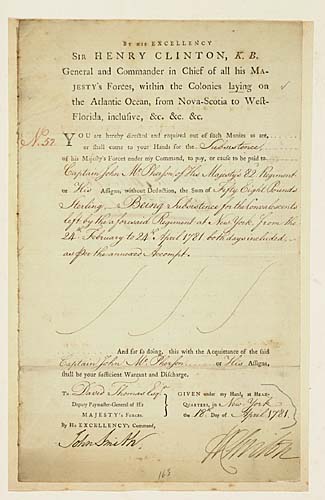 By His EXCELLENCY
SIR HENRY CLINTON, K. B.
General and Commander in Chief of all his MA-
JESTY's Forces, within the Colonies laying on
the Atlantic Ocean, from Nova-Scotia to West-
Florida, inclusive, &c. &c. &c.
No. 52.
YOU are hereby directed and required out of such Monies as are,
or shall come to your Hands for the Subsistence
of his Majesty's Forces under my Command, to pay, or cause to be paid to
Captain John McPherson of His Majesty's 82 Regiment
or His Assigns, without Deduction, the Sum of Fifty Eight Pounds
Sterling, Being Subsistence for the Convalescents
left by the aforesaid Regiment at New York, from the
24th February to 24th April 1781 both days included
as per the annexed Accompt.
And for so doing, this with the Acquittance of the said
Captain John McPherson or His Assigns,
shall be your sufficient Warrant and Discharge.
To David Thomas Esqr.
Deputy Paymaster-General of His
MAJESTY's FORCES.
By His EXCELLENCY's Command,
John Smith
GIVEN under my Hand, at HEAD-
QUARTERS, in New York
the 18th Day of April 1781.
H Clinton